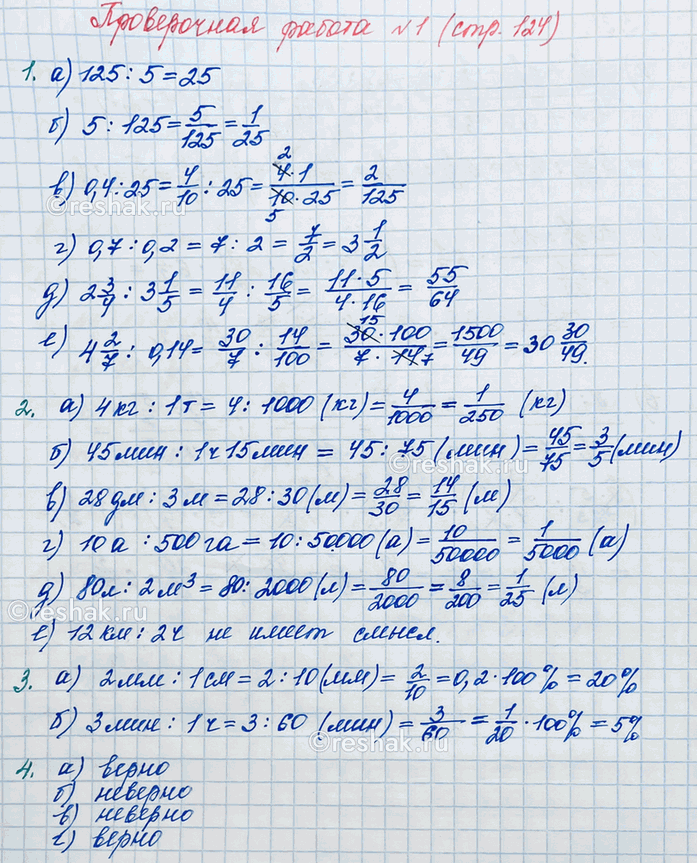 Проверочная работа №1 (стр. 124)
1. а) 125 : 5 = 25
б) 5 : 125 = 5/125 = 1/25
в) 0,4 : 25 = 4/10 : 25 = 4·1/10·25 = 2/125
2
5
г) 0,7 : 0,2 = 7 : 2 = 7/2 = 3 1/2
д) 2 3/4 : 3 1/5 = 11/4 : 16/5 = 11·5/4·16 = 55/64
е) 4 2/7 : 0,14 = 30/7 : 14/100 = 30·100/7·14 = 1500/49 = 30 30/49.
15
7
2. а) 4 кг : 1 т = 4 : 1000 (кг) = 4/1000 = 1/250 (кг)
б) 45 мин : 1 ч 15 мин = 45 : 75 (мин) = 45/75 = 3/5 (мин)
в) 28 дм : 3 м = 28 : 30 (м) = 28/30 = 14/15 (м)
г) 10 а : 500 га = 10 : 50000 (а) = 10/50000 = 1/5000 (а)
д) 80 л : 2 м³ = 80 : 2000 (л) = 80/2000 = 8/200 = 1/25 (л)
е) 12 км : 2 ч не имеет смысл.
3. а) 2 мм : 1 см = 2 : 10 (мм) = 2/10 = 0,2 · 100 % = 20 %
б) 3 мин : 1 ч = 3 : 60 (мин) = 3/60 = 1/20 · 100 % = 5 %
4. а) верно
б) неверно
в) неверно
г) верно
reshak.ru
reshak.ru
reshak.ru
reshak.ru
reshak.ru